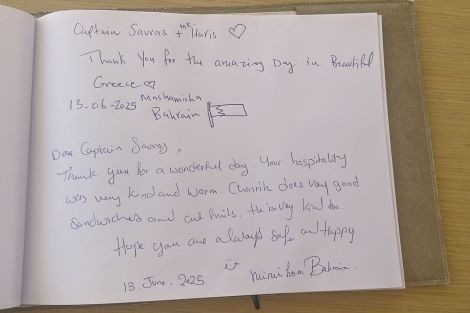 Captain Savvas + Mr Haris ♡
Thank You for the amazing Day in Beautiful
Greece ♡
13-06-2025 Mashamisha
Bahrain
Dear Captain Savvas,
Thank you for a wonderful day. Your hospitality
was very kind and warm does very good
Sandwiches and cut fruits. He is very kind too.
Hope you are always safe and Happy
13. June. 2025 from Bahrain.